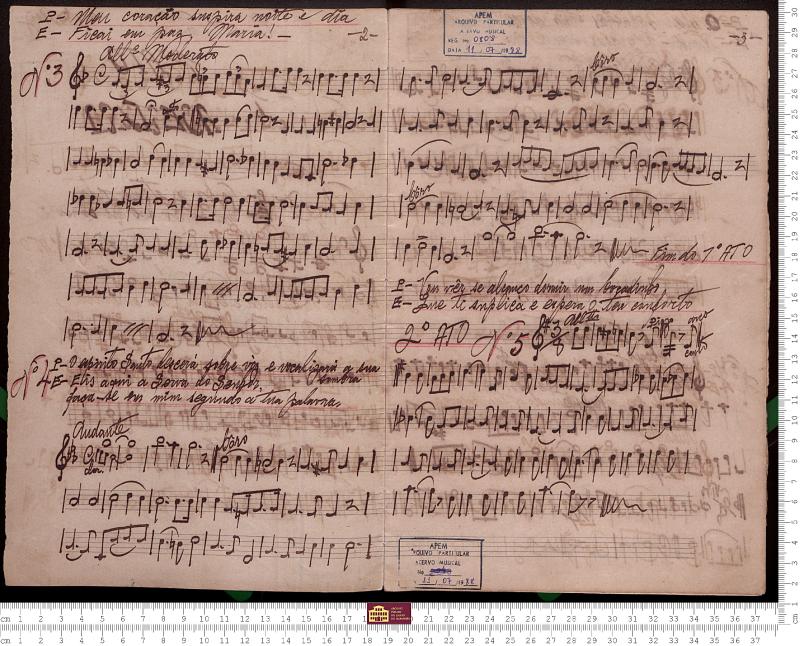 P- Meu coração suspira noite e dia
E- Ficai em paz Maria! -
-2-
All° Moderato
N° 3
N° 4
P- O espirito Santo descerá sobre vós e vocalizará a sua sombra
E- Eis aqui a Serva do Senhor,
faça-se em mim segundo a tua palavra
Andante
Côro
APEM
ARQUIVO PARTICULAR
ACERVO MUSICAL
REG. No 0808
DATA 11, 07, 1998
-3-
Côro
Côro
Fim do 1° ATO
P- Vou vêr se alguem dormir um bocadinho,
E- Que te suplica e espera o teu conforto
2° ATO
N° 5
APEM
ARQUIVO PARTICULAR
ACERVO MUSICAL
No
11, 07, 1998
cm 1 2 3 4 5 6 7 8 9 10 11 12 13 14 15 16 17 18 20 21 22 23 24 25 26 27 28 29 30 31 32 33 34 35 36 37